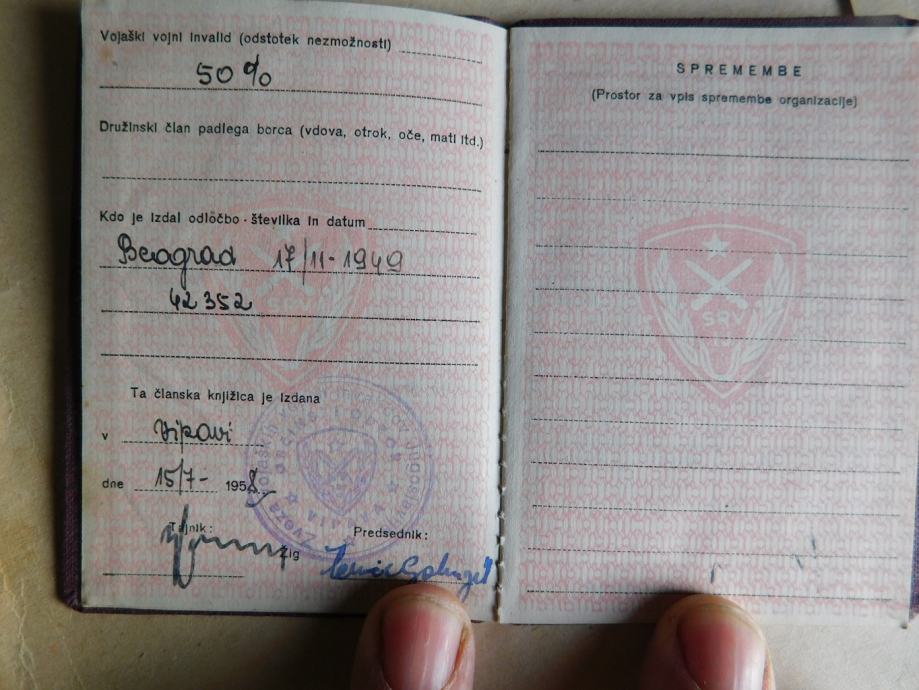 Vojaški vojni invalid (odstotek nezmožnosti)
50%
Družinski član padlega borca (vdova, otrok, oče, mati itd.)
Kdo je izdal odločbo - številka in datum
Beograd 17/11-1949
42352
Ta članska knjižica je izdana
v
dne 15/7- 1958
Tajnik:
Žig
Predsednik:
SPREMEMBE
(Prostor za vpis spremembe organizacije)
SRV